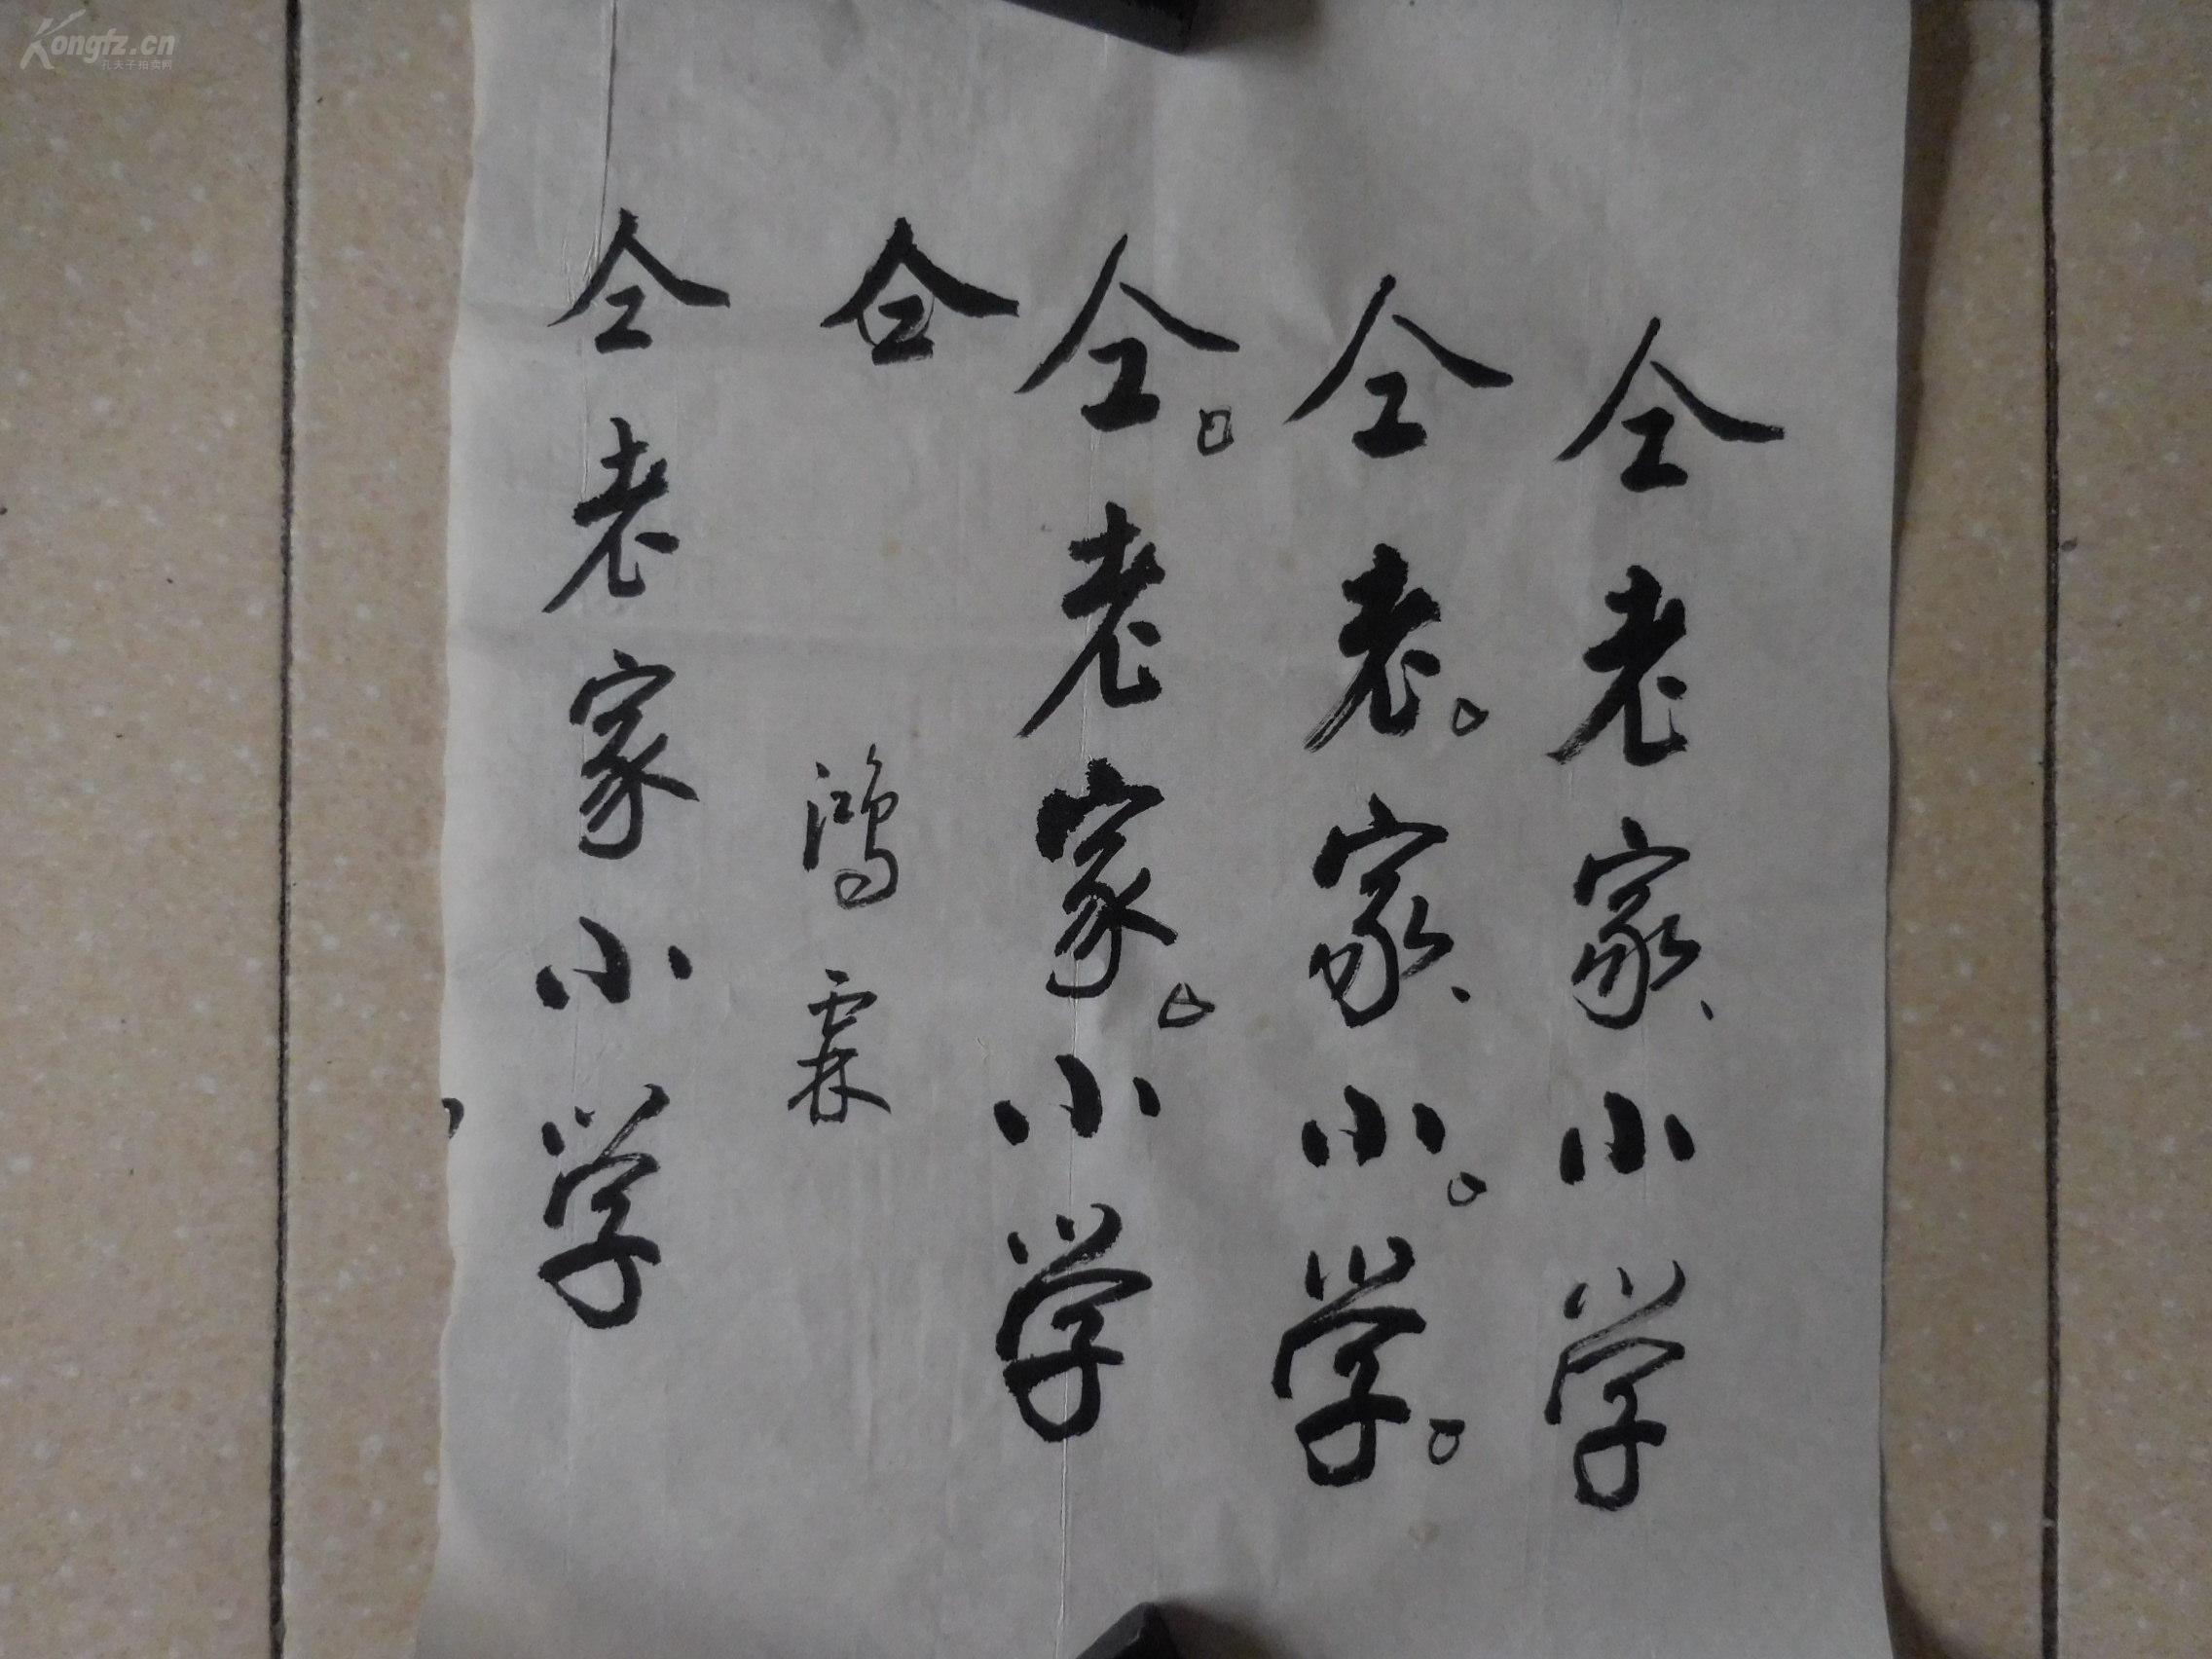 仝老家小学
仝老家小学
仝老家小学
仝
鸿霖
仝老家小学
Kongfz.cn
孔夫子拍卖网